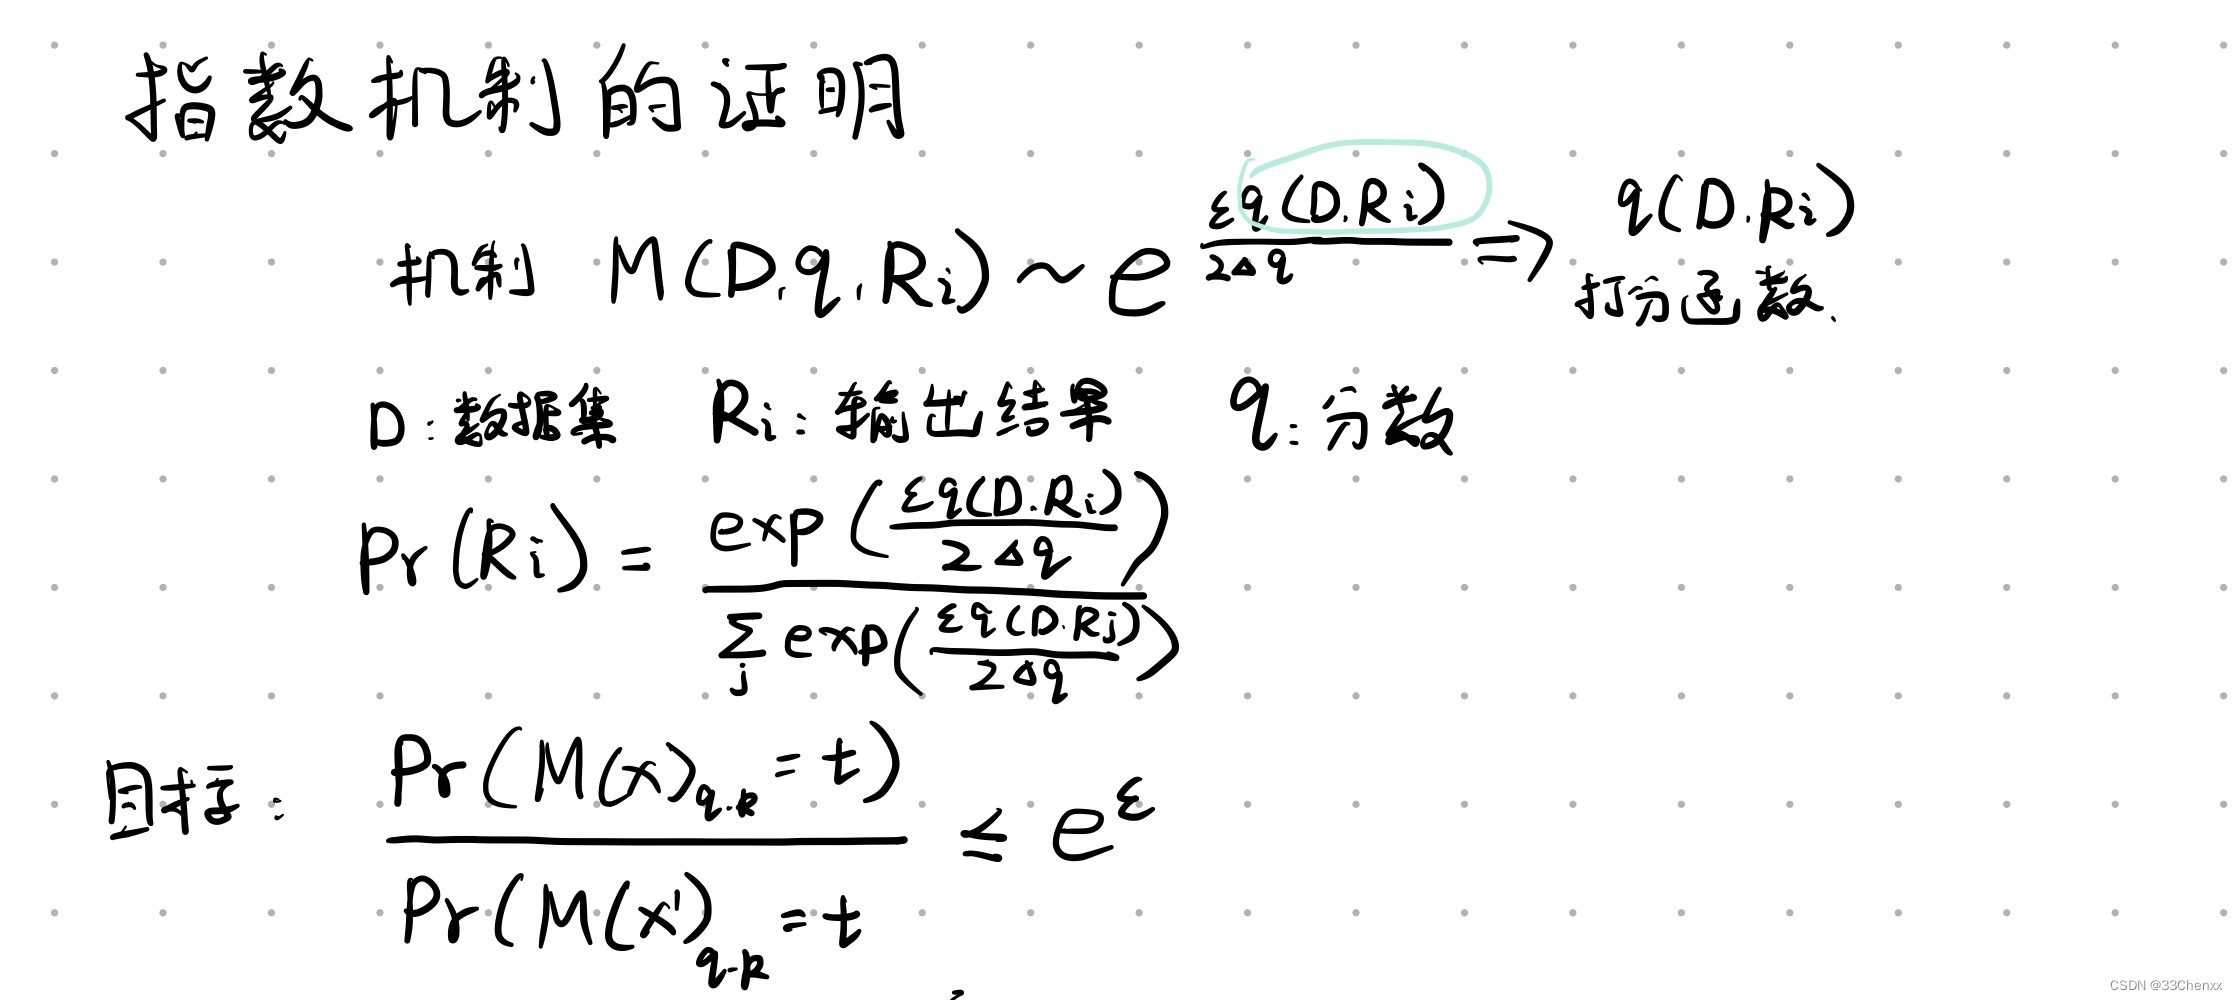 指数机制的证明
机制 M(D.q.Ri) ~ e^{\frac{εq(D.Ri)}{2Δq}} ⇒ q(D.Ri)
打分函数.
D:数据集 Ri:输出结果 q:分数
Pr(Ri) = \frac{exp(\frac{εq(D.Ri)}{2Δq})}{\sum_j exp(\frac{εq(D.Rj)}{2Δq})}
目标: \frac{Pr(M(x)_{q.R} = t)}{Pr(M(x')_{q.R} = t} ≤ e^ε
CSDN @33Chenxx